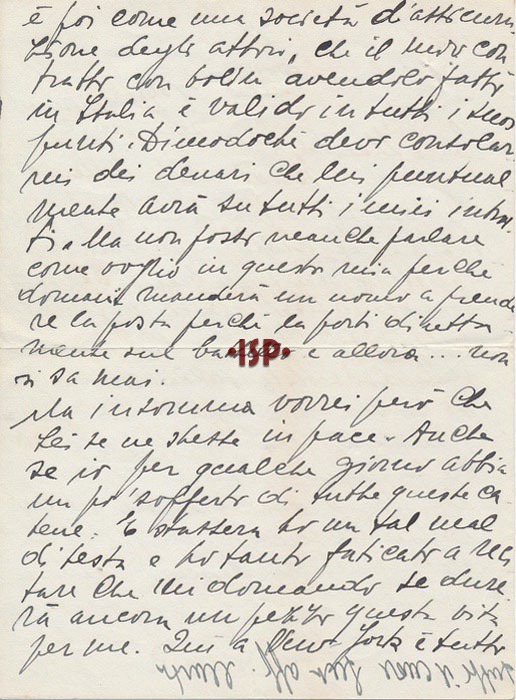 è poi come una società d'assicura
zione degli attori, che il mio con
tratto con lui avendolo fatto
in Italia è valido in tutti i suoi
punti. Dimodoché devo consolar
mi dei denari che lui puntual
mente avrà su tutti i miei introi
ti. Ma non posso neanche parlare
come voglio in questa mia perchè
domani manderà un uomo a prende
re la posta perchè la porti diretta
mente sul e allora... non
si sa mai.
Ma insomma vorrei però che
Lei se ne stesse in pace. Anche
se io per qualche giorno abbia
un po' sofferto di tutte queste ca
tene. E stassera ho un tal mal
di testa e ho tanto faticato a reci
tare che mi domando se dure
rà ancora un pezzo questa vita
per me. Qui a New-York è tutto
•ISP•